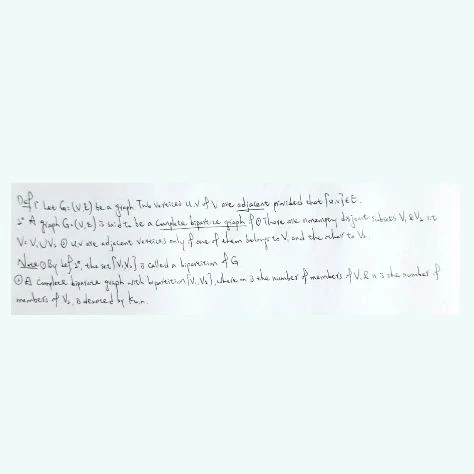 Def: 1° Let G=(V,E) be a graph. Two vertices u,v of V are adjacent provided that {u,v}∈E.
2° A graph G=(V,E) is said to be a complete bipartite graph if ① There are nonempty disjoint subsets V₁ & V₂ s.t
V=V₁∪V₂ ② u,v are adjacent vertices only if one of them belongs to V₁ and the other to V₂.
Note ① By def 2°, the set {V₁,V₂} is called a bipartition of G
② A complete bipartite graph with bipartition {V₁,V₂}, where m is the number of members of V₁ & n is the number of
members of V₂, is denoted by Km,n.